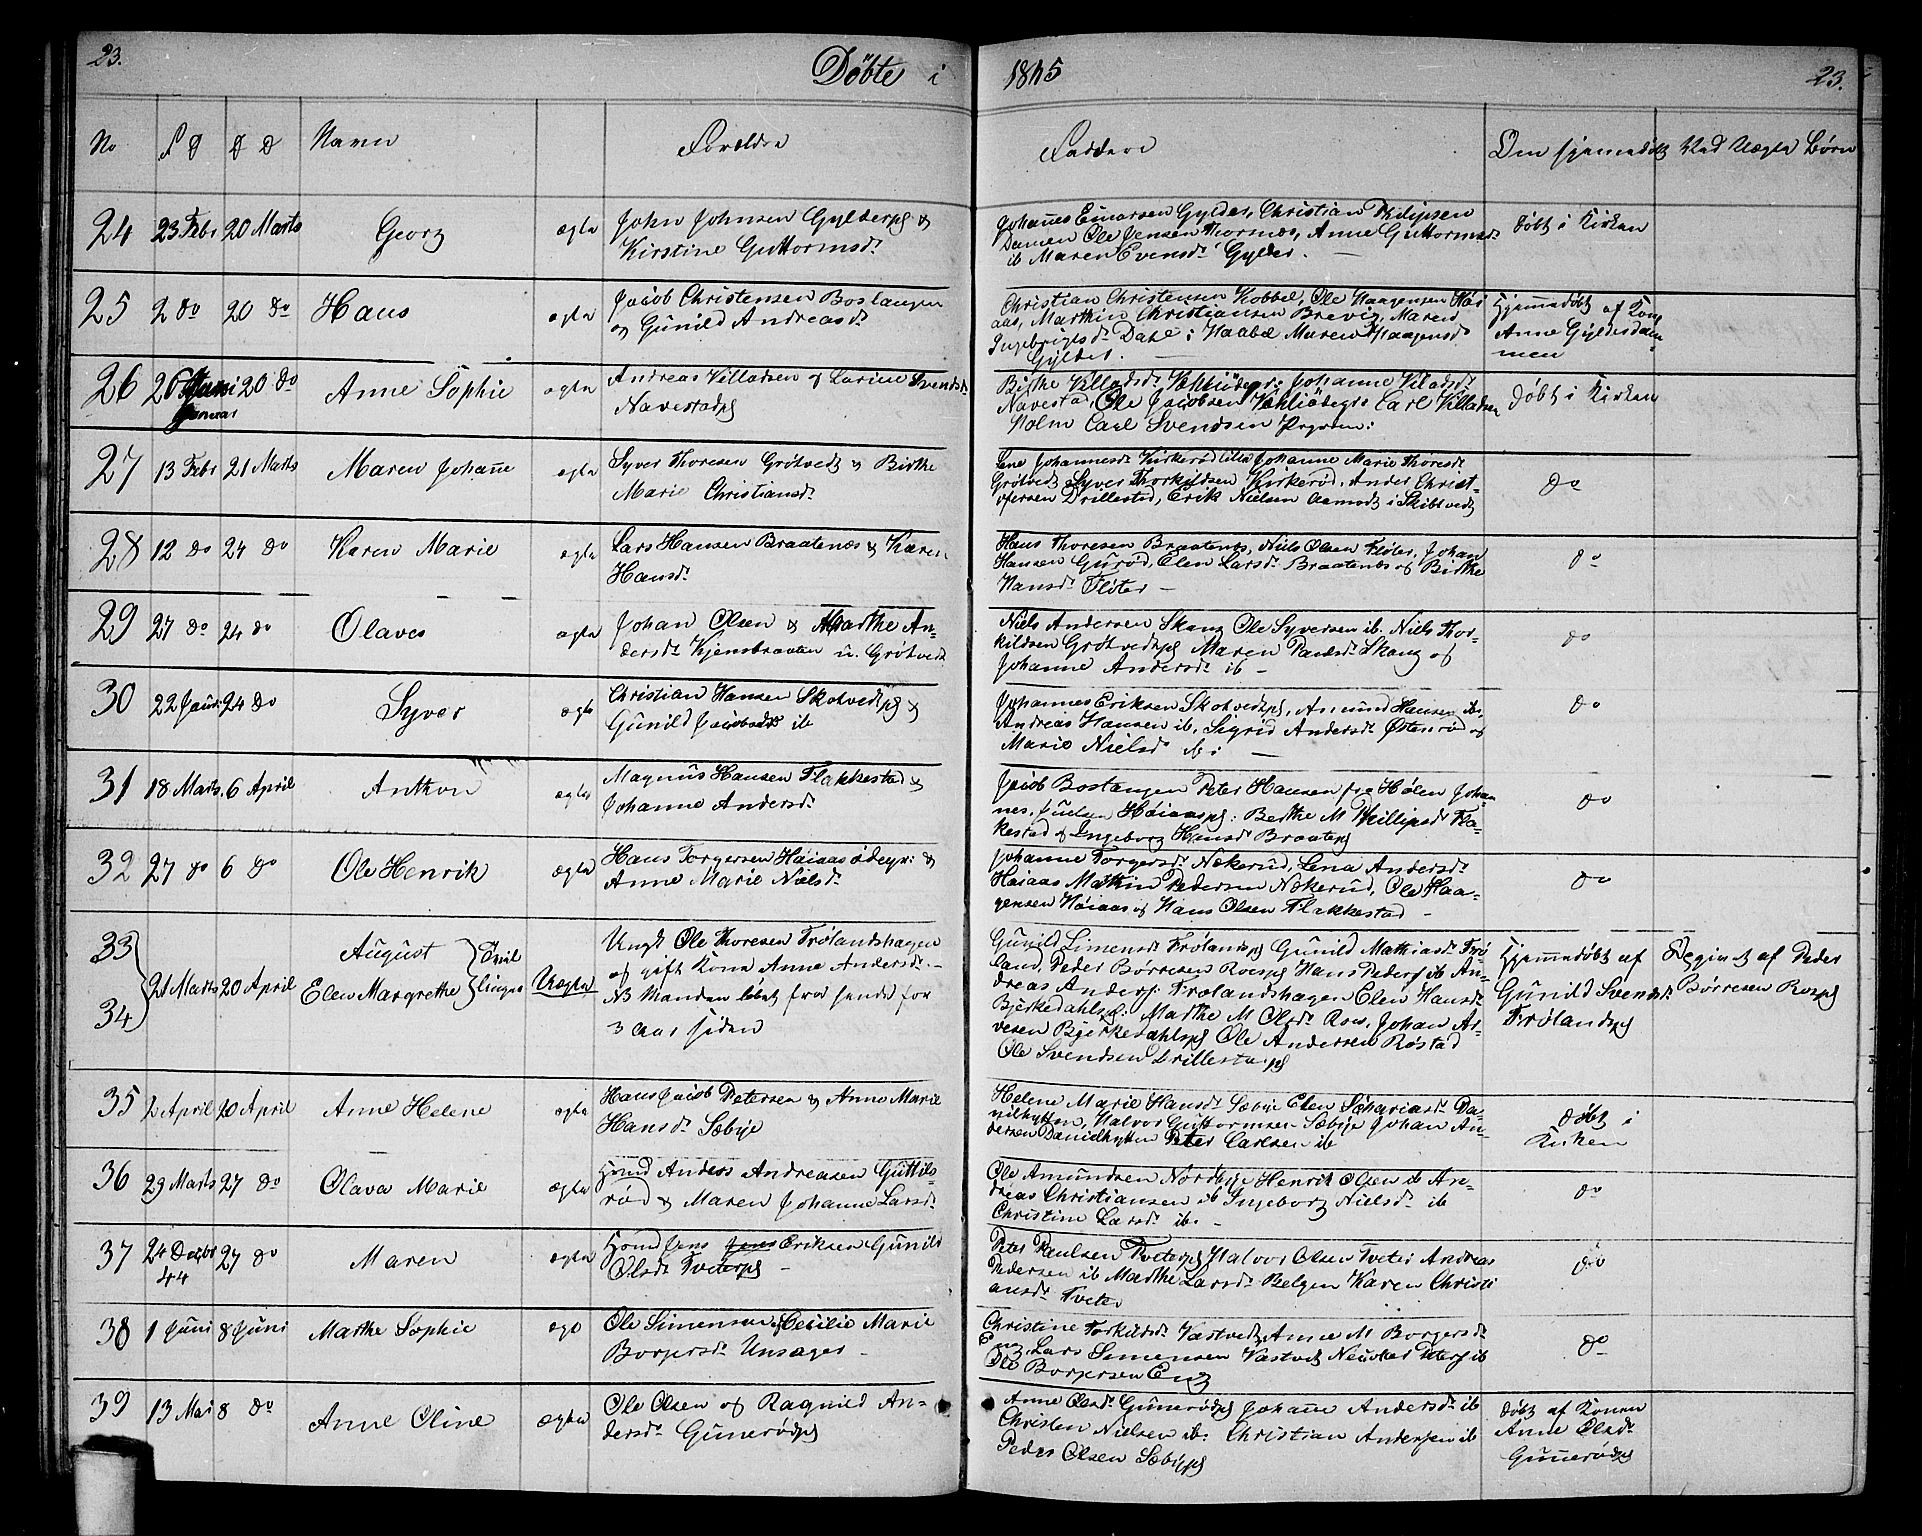 23.
Døbte i
1845
23.
No
F D
D D
Navn
Forældre
Faddere
Om hjemmedøbt
Ved Uægte Børn
24
23 Febr
20 Marts
Georg
ægte
John Johnsen Gylderpl &
Kirstine Guttormsdr
Johañes Einarsen Gylder, Christian Philipsen
Damen Ole Jensen Thornæs, Anne Guttormsdr
ib Maren Evensdr Gylder.
døbt i Kirken
25
2 do
20 do
Hans
ægte
Jacob Christensen Boslangen
og Gunild Andreasdr
Christian Christensen Kobbel, Ole Haagensen Høi
aas, Marthin Christiansen Brevig, Maren
Ingebrigtsdr Dale i Haabøl Maren Haagensdr
Gylder.
Hjemmedøbt af Kone
Anne Gylderdam
men
26
26 Juni
Januar
20 do
Anne Sophie
ægte
Andreas Villadsen og Larine Svendsdr
Navestadpl
Birthe Villadsdr Johanne Viladsdr
Navestad, Ole Jacobsen Carl Villadsen
Holm Carl Svendsen
døbt i Kirken
27
13 Febr
21 Marts
Maren Johañe
ægte
Syver Thoresen Grøtvedt & Birthe
Marie Christiansdr
Lene Johannesdr Kirkerød lille Johanne Marie Thoresdr
Grøtvedt Syver Thorkildsen Kirkerød, Ander Christ-
ofersen Drillestad, Erik Nielsen Aamodt i Skibtvedt
do
28
12 do
24 do
Karen Marie
ægte
Lars Hansen Braatenes & Karen
Hansdr
Hans Thoresen Braatenes, Niels Olsen Fløter, Johan
Hansen Gurød, Elen Larsdr Braatenes og Birthe
Hansdr Fløter
do
29
27 do
24 do
Olaves
ægte
Johan Olsen & Marthe An-
dersdr Kjensbraaten u. Grøtvedt
Niels Andersen Skaug Ole Syversen ib. Niels Thor-
kildsen Grøtvedtpl Maren Paulsdr Skaug og
Johanne Andersdr ib
do
30
22 Janr
24 do
Syver
ægte
Christian Hansen Skotvedtpl &
Gunild Jacobsdr ib
Johannes Eriksen Skotvedtpl, Amund Hansen ib,
Andreas Hansen ib, Sigrid Andersdr Østenrød og
Marie Nielsdr ib
do
31
18 Marts
6 April
Anthon
ægte
Magnus Hansen Flakkestad &
Johanne Andersdr
Jacob Bostangen Peter Hansen fra Hølen Johan
nes Juelsen Høiaaspl: Berthe M Phillipsdr Fla-
kestad og Ingeborg Hansdr Braatepl
do
32
27 do
6 do
Ole Henrik
ægte
Hans Torgersen Høiaasødegr: &
Anne Marie Nielsdr
Johanne Torgersdr Nækerud, Lena Andersdr
Høiaas Mathin Pedersen Nækerud, Ole Haa-
gensen Høiaas og Hans Olsen Flakkestad
do
33
34
21 Marts
20 April
August
Elen Margrethe
Tvil
linger
Uægte
Ungk Ole Thoresen Frølandshagen
og gift Kone Anne Andersdr.
NB Manden løbet fra hende for
3 aar siden
Gunild Simensdr Frølandpl Gunild Mathiasdr Frø
land, Peder Børresen Roespl Hans Peders: ib An-
dreas Anders: Frølandshagen Elen Hansdr
Bjerkedahlspl: Marthe M Olsdr Roes, Johan Ar-
vesen Bjerkedahlspl Ole Andersen Røstad
Ole Svendsen Drillestapl
Hjemmedøbt af
Gunild Svendsdr
Frølandspl
Begivet af Peder
Børresen Roespl
35
2 April
20 April
Anne Helene
ægte
Hans Jacob Petersen & Anne Marie
Hansdr Sæbye
Helene Marie Hansdr Sæbye Elen Sachariasdr Da-
nilhytten, Halvor Guttormsen Sæbye Johan An-
dersen Danielhytten Peter Carlsen ib
døbt i
Kirken
36
29 Marts
27 do
Olava Marie
ægte
Hmd Anders Andreasen Guttils
rød & Maren Johanne Larsdr
Ole Amundsen Nordbye Henrik Olsen ib An-
dreas Christiansen ib Ingeborg Nielsdr ib
Christine Larsdr ib.
do
37
24 Decbr
44
27 do
Maren
ægte
Hmd Jens Jens Eriksen Gunild
Olsdr Tveterpl
Peter Paulsen Tveterpl Halvor Olsen Tveter Andreas
Pedersen ib Marthe Larsdr Belgen Karen Christi
ansdr Tveter
do
38
1 Juni
8 Juni
Marthe Sophie
ægt
Ole Simensen og Cecilie Marie
Borgersdr Unsager
Christine Torkildsdr Vastvedt, Anne M Borgersdr
Eng, Lars Simensen Vastvedt Peters ib
Ole Borgersen Eng
do
39
13 Mai
8 do
Anne Oline
ægte
Ole Olsen og Ragnild An-
dersdr Gunerødpl
Anne Olsdr Gunerødpl Johañe Andersdr ib
Christen Nielsen ib. Christian Andersen ib
Peder Olsen Sæbyepl
døbt af Konen
Anne Olsdr
Guñerødpl